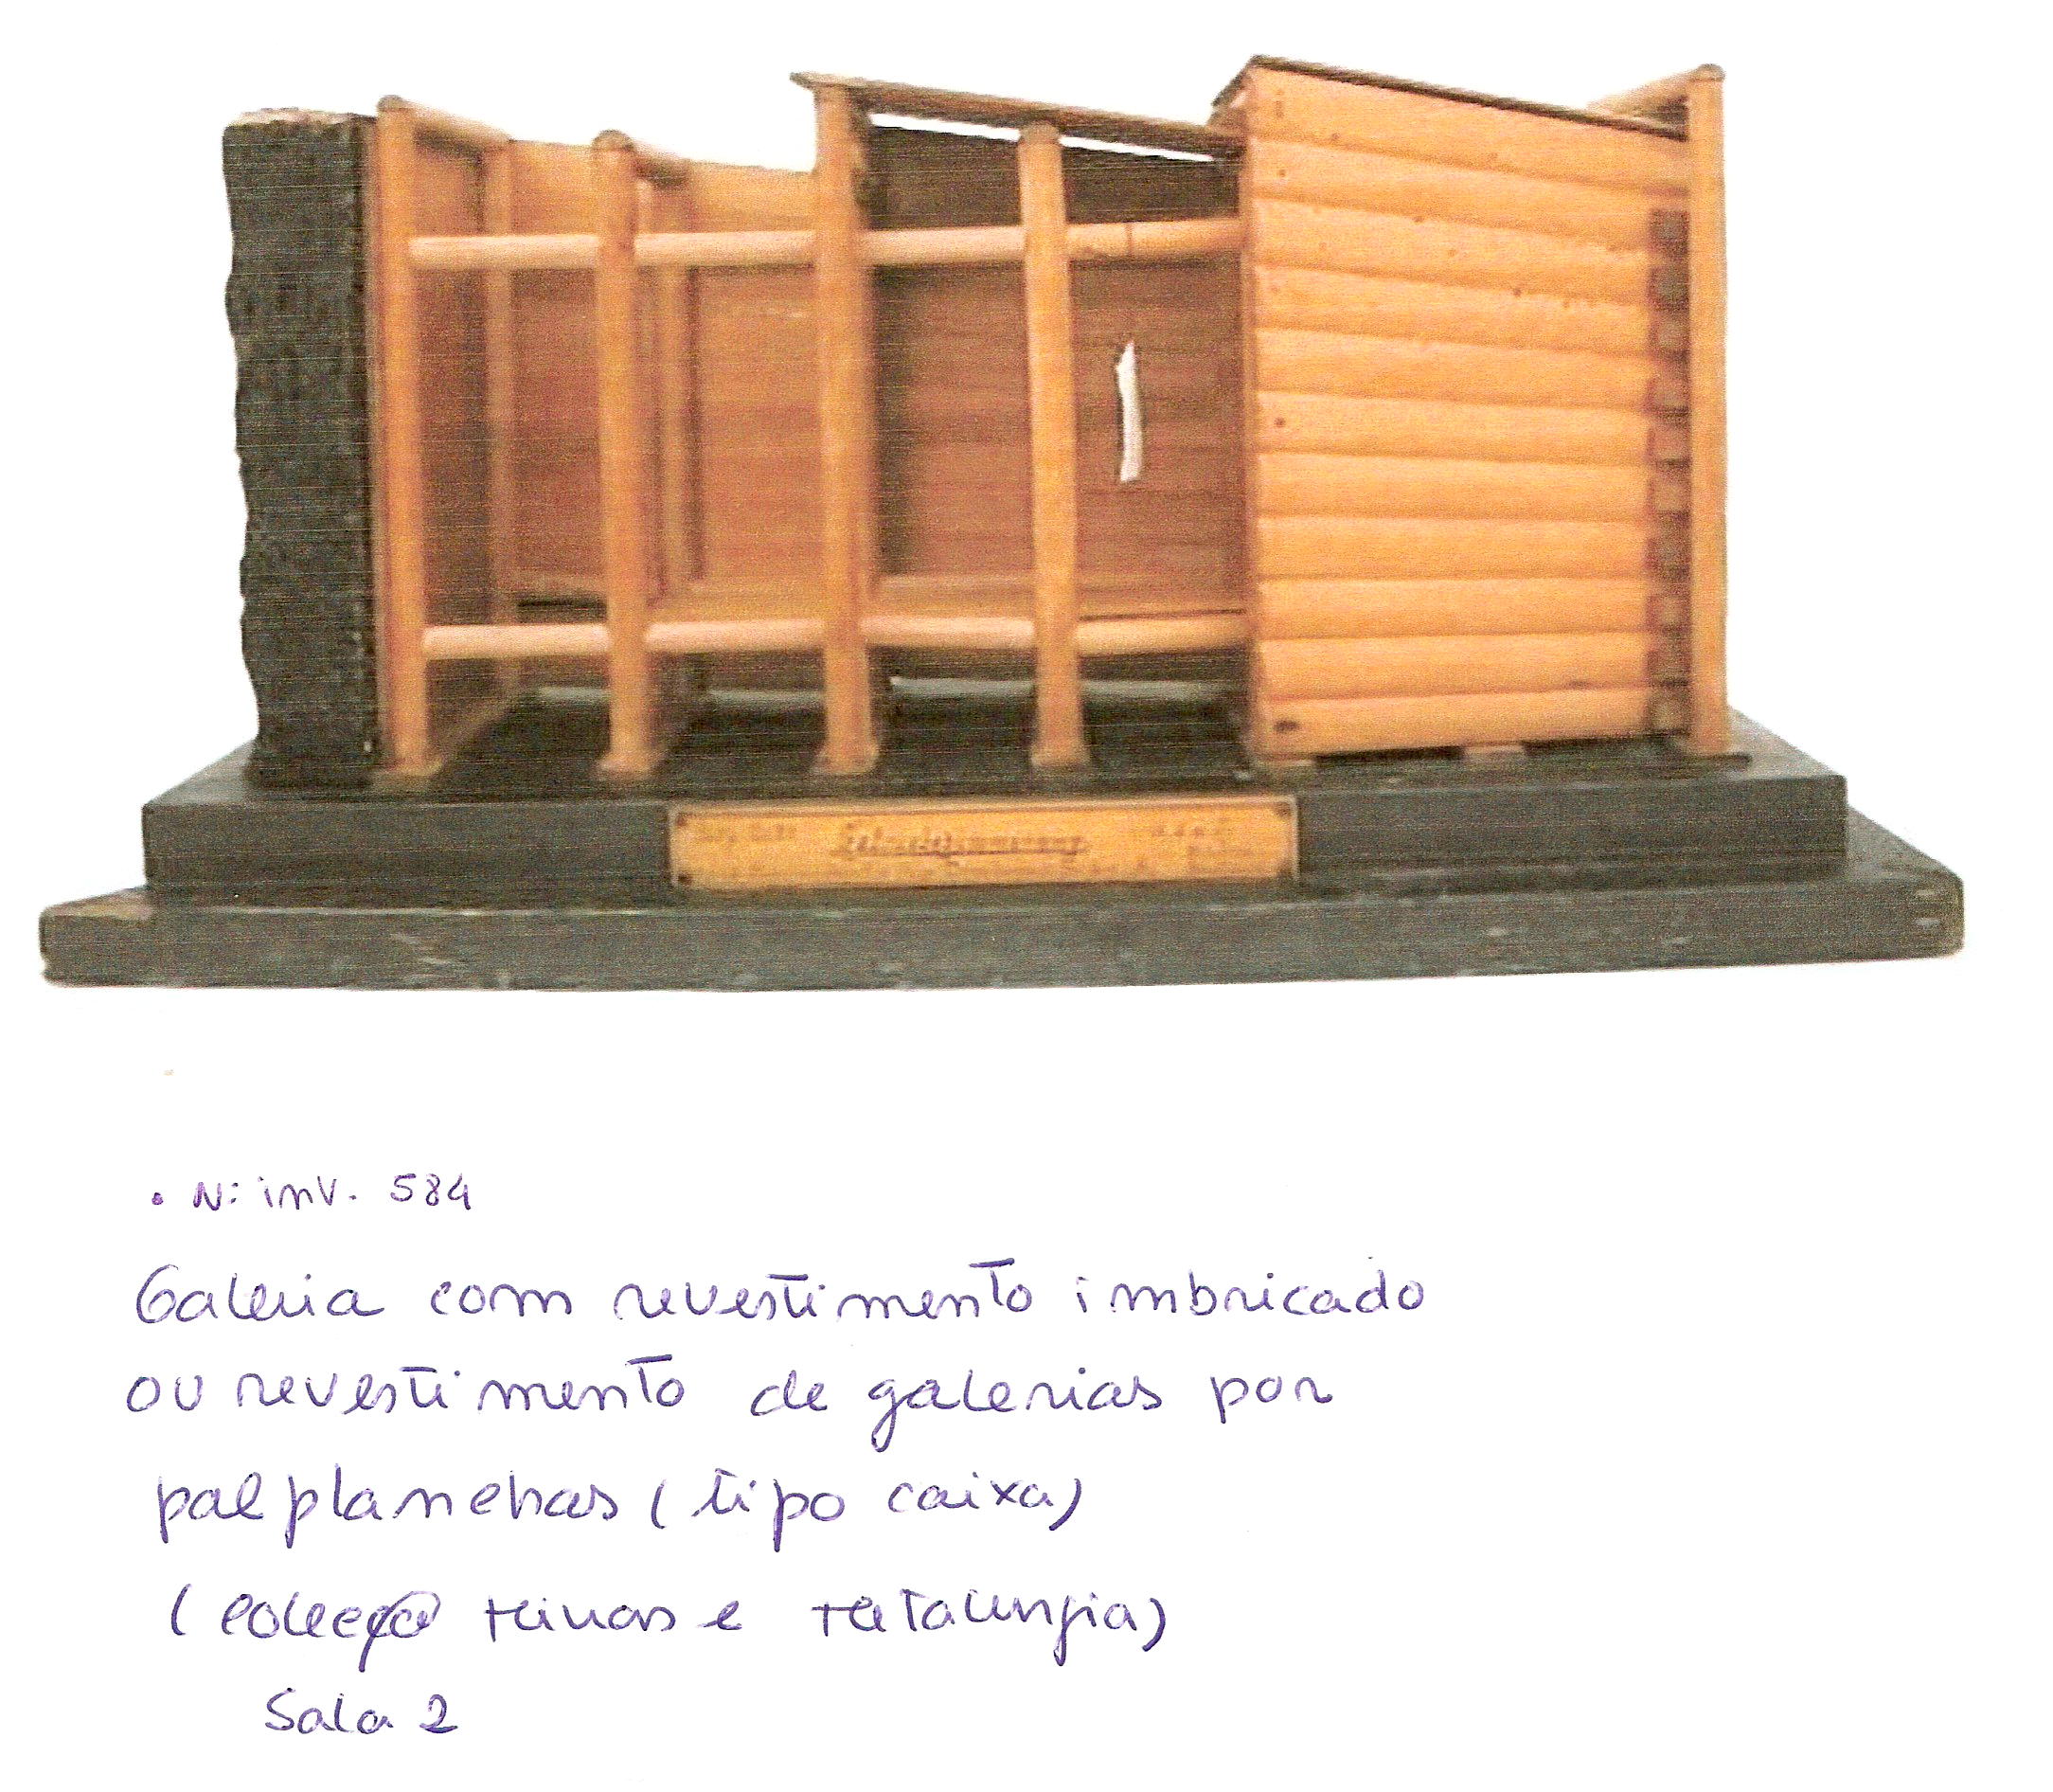 • N: inv. 584
Galeria com revestimento imbricado
ou revestimento de galerias por
palplanchas (tipo caixa)
(coleção Minas e Metalurgia)
Sala 2